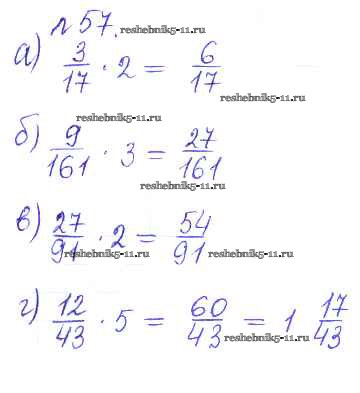 №57.
reshebniks-11.ru
а) 3/17 · 2 = 6/17
reshebniks-11.ru
reshebniks-11.ru
б) 9/161 · 3 = 27/161
reshebniks-11.ru
в) 27/91 · 2 = 54/91
reshebnik5-11.ru reshebnik5-11.ru
г) 12/43 · 5 = 60/43 = 1 17/43
reshebnik5-11.ru